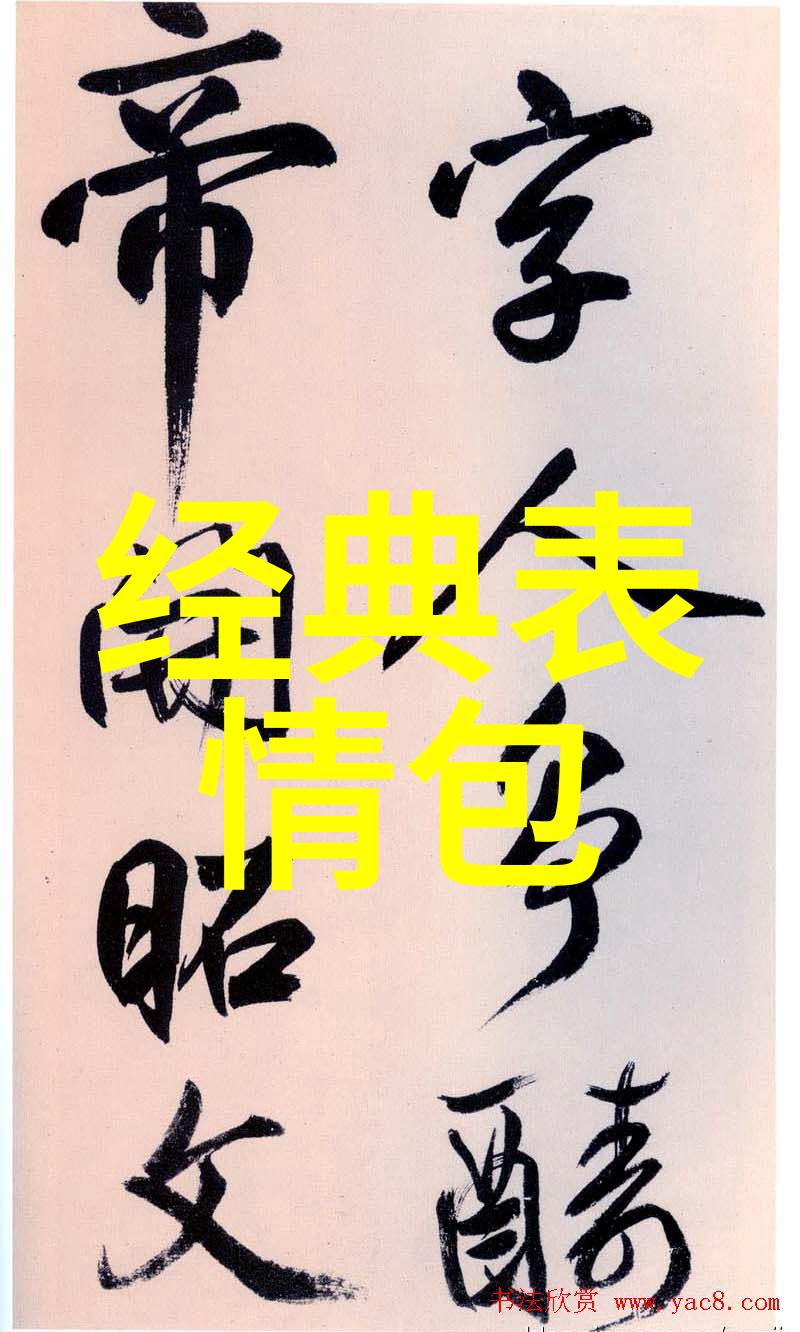 字人争醻
帝開昭文
经典表
情包
书法欣赏 www.yac8.com